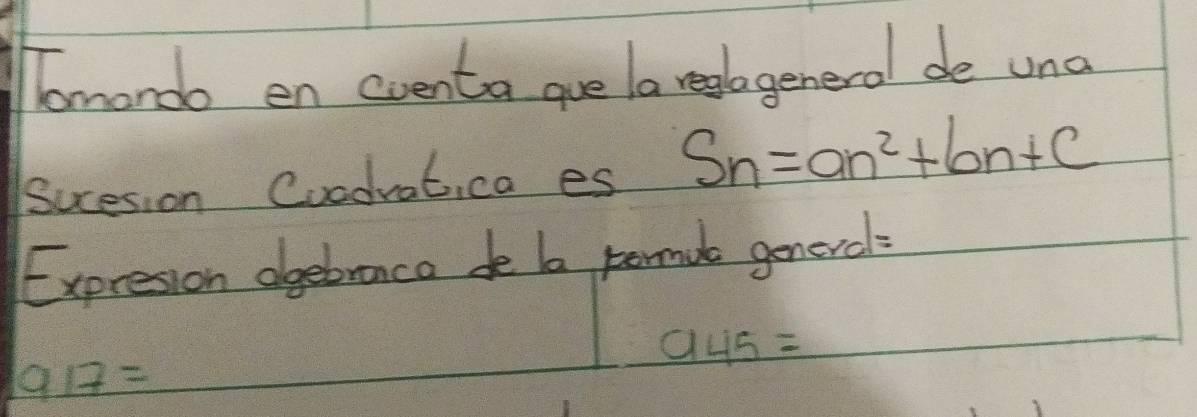 Tomando en cuenta que la regla general de una
sucesion Cuadratica es Sn=an²+bn+C
Expresion algebraica de la formula general=
a17=
a45=